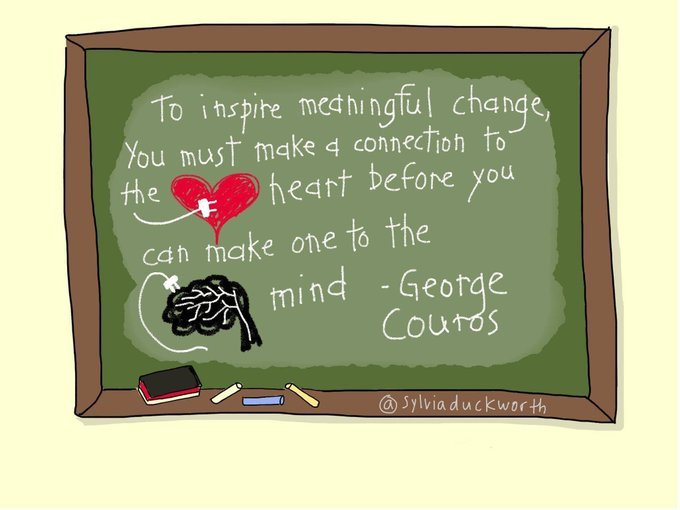 To inspire meaningful change,
You must make a connection to
the heart before you
can make one to the
mind - George
Couros
@sylviaduckworth